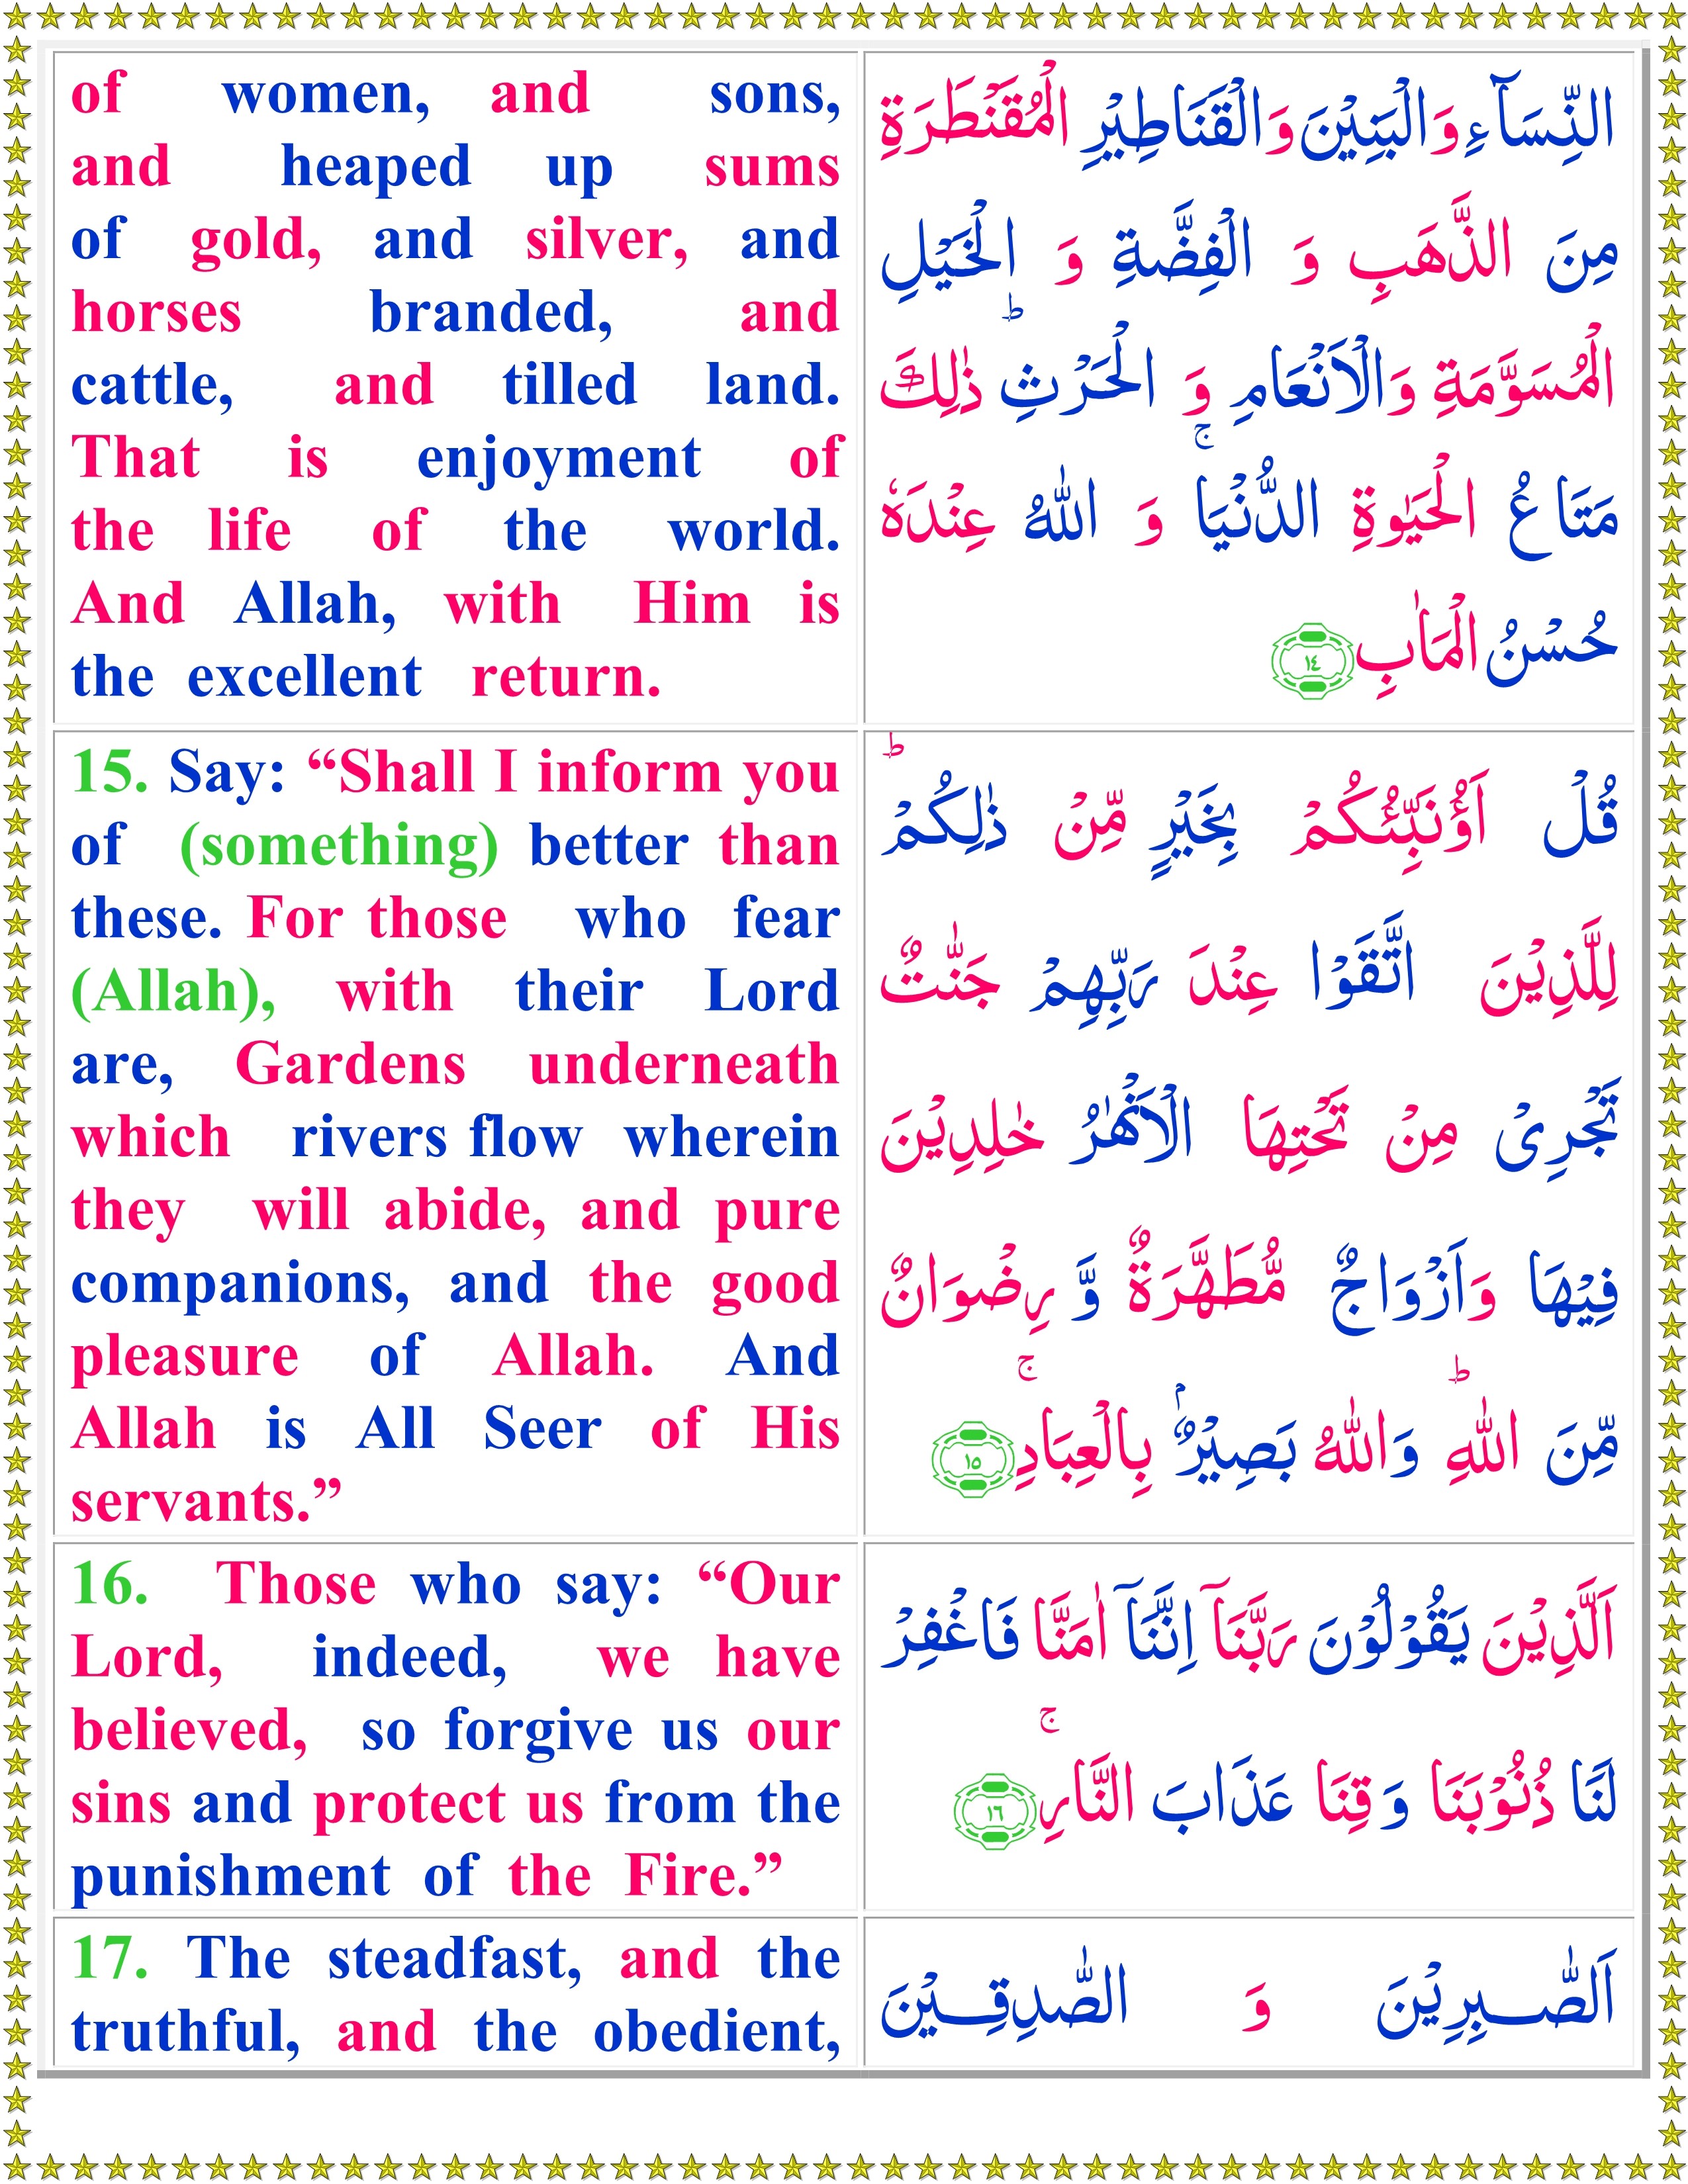 of women, and sons,
and heaped up sums
of gold, and silver, and
horses branded, and
cattle, and tilled land.
That is enjoyment of
the life of the world.
And Allah, with Him is
the excellent return.
النِّسَآءِ وَالْبَنِيْنَ وَالْقَنَاطِيْرِ الْمُقَنْطَرَةِ
مِنَ الذَّهَبِ وَ الْفِضَّةِ وَ الْخَيْلِ
الْمُسَوَّمَةِ وَالْاَنْعَامِ وَ الْحَرْثِ ؕ ذٰلِكَ
مَتَاعُ الْحَيٰوةِ الدُّنْيَا ۚ وَ اللّٰهُ عِنْدَهٗ
حُسْنُ الْمَاٰبِ ١٤
15. Say: “Shall I inform you
of (something) better than
these. For those who fear
(Allah), with their Lord
are, Gardens underneath
which rivers flow wherein
they will abide, and pure
companions, and the good
pleasure of Allah. And
Allah is All Seer of His
servants.”
قُلْ اَؤُنَبِّئُكُمْ بِخَيْرٍ مِّنْ ذٰلِكُمْ ؕ
لِلَّذِيْنَ اتَّقَوْا عِنْدَ رَبِّهِمْ جَنّٰتٌ
تَجْرِىْ مِنْ تَحْتِهَا الْاَنْهٰرُ خٰلِدِيْنَ
فِيْهَا وَاَزْوَاجٌ مُّطَهَّرَةٌ وَّ رِضْوَانٌ
مِّنَ اللّٰهِ ؕ وَاللّٰهُ بَصِيْرٌۢ بِالْعِبَادِ ۚ ١٥
16. Those who say: “Our
Lord, indeed, we have
believed, so forgive us our
sins and protect us from the
punishment of the Fire.”
اَلَّذِيْنَ يَقُوْلُوْنَ رَبَّنَاۤ اِنَّنَاۤ اٰمَنَّا فَاغْفِرْ
لَنَا ذُنُوْبَنَا وَقِنَا عَذَابَ النَّارِ ۚ ١٦
17. The steadfast, and the
truthful, and the obedient,
اَلصّٰــبِرِيْنَ وَ الصّٰدِقِــيْنَ